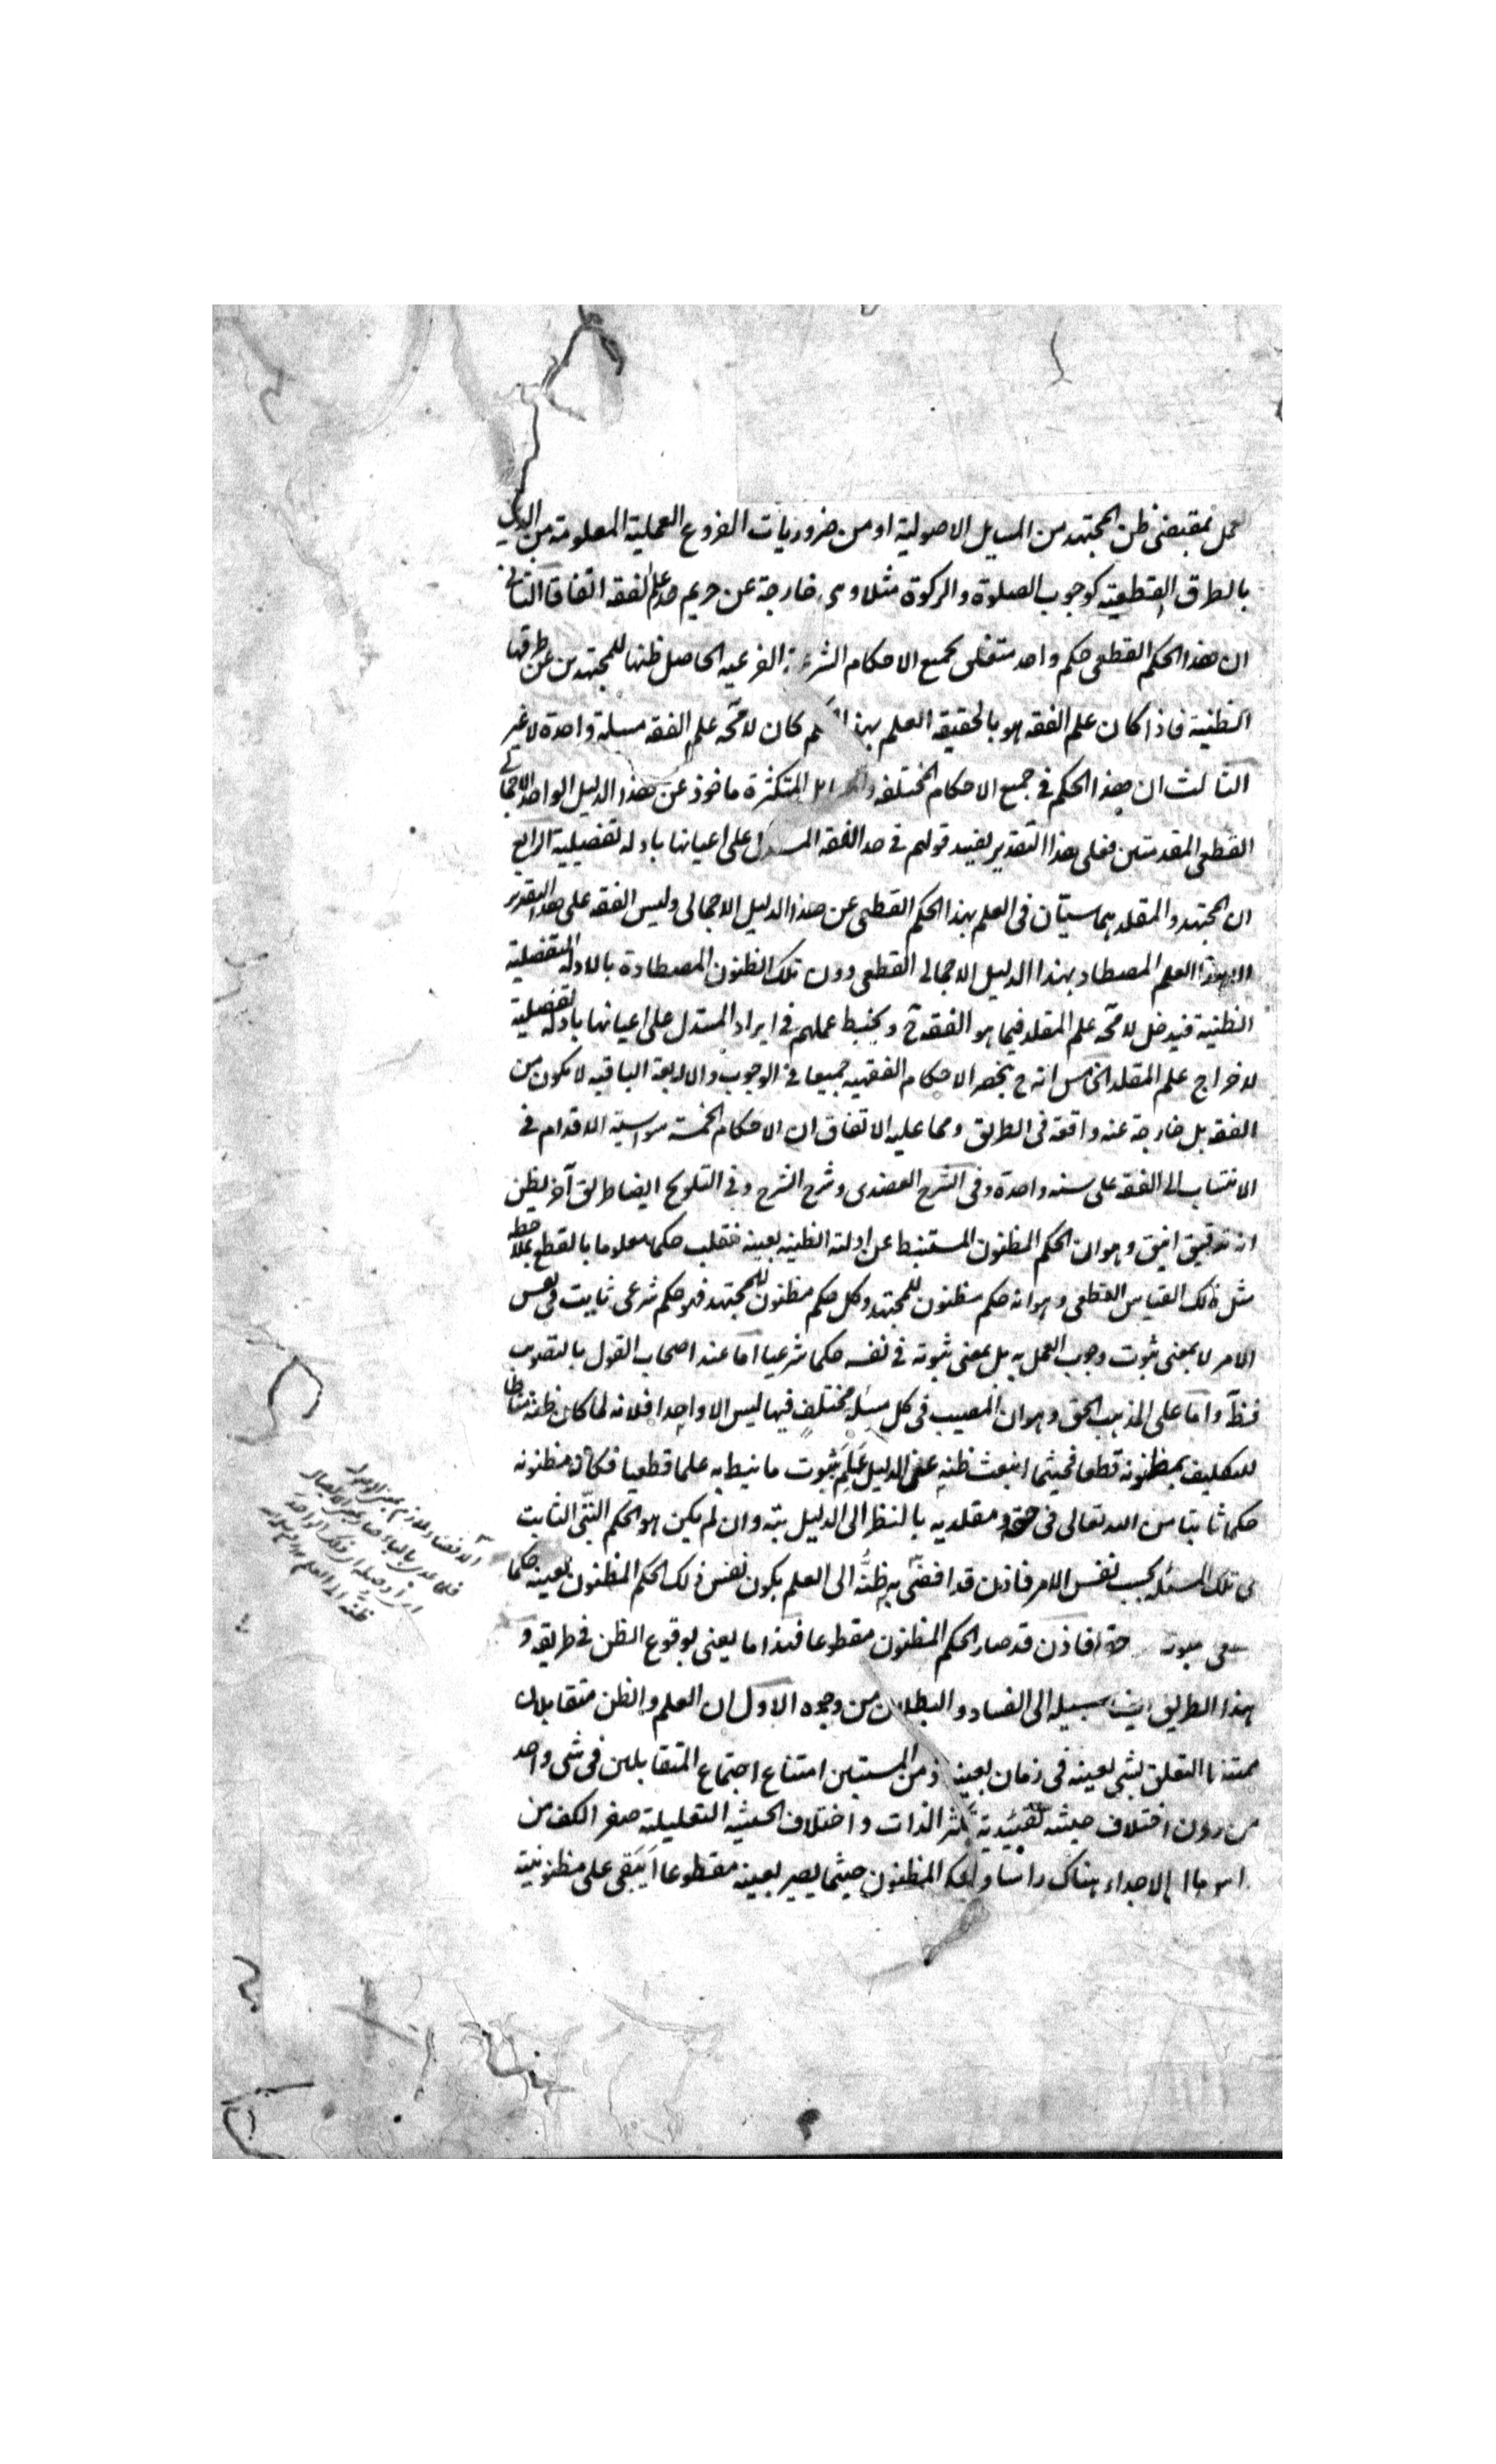 العمل بمقتضى ظن المجتهد من المسايل الاصولية او من ضروريات الفروع العملية المعلومة من الدين
بالطرق القطعية كوجوب الصلوة والزكوة مثلا وهى خارجة عن حريم حد علم الفقه اتفاقا الثانى
ان هذا الحكم القطعى حكم واحد متعلق بجميع الاحكام الفرعيه الحاصل ظنها للمجتهد من عن طرقها
الظنية فاذا كان علم الفقه هو بالحقيقة العلم بهذا الحكم كان لا محة علم الفقه مسئلة واحدة لا غير
الثالث ان هذا الحكم فى جميع الاحكام المختلفه والمسايل المتكثرة ماخوذ عن هذا الدليل الواحد الاجمالى
القطعى المقدمتين فعلى هذا التقدير يفسد قولهم فى حد الفقه المستدل على اعيانها بادلة تفصيلية الرابع
ان المجتهد والمقلد هما سيّان فى العلم بهذا الحكم القطعى عن هذا الدليل الاجمالى وليس الفقه على هذا التقدير
الا هذا العلم المصطاد بهذا الدليل الاجمالى القطعى دون تلك الظنون المصطادة بالادلة التفصيلية
الظنية فيدخل لا محة علم المقلد فيما هو الفقه ح ويخبط عملهم فى ايراد المستدل على اعيانها بادلة تفصيلية
لاخراج علم المقلد الخامس انه ح ينحصر الاحكام الفقهيه جميعا فى الوجوب والاربعة الباقيه لا يكون من
الفقه بل خارجة عنه واقعة فى الطريق ومما عليه الاتفاق ان الاحكام الخمسة سواسية الاقدام فى
الانتساب الى الفقه على سنه واحدة وفى الشرح العضدى وشرح الشرح وفى التلويح ايضا طريق آخر يظن
انه تدقيق انيق وهو ان الحكم المظنون المستنبط عن ادلته الظنيه بعينه ينقلب حكما معلوما بالقطع بملاحظه
مثل ذلك القياس القطعى وهو انه حكم مظنون للمجتهد وكل حكم مظنون للمجتهد فهو حكم شرعى ثابت فى نفس
الامر لا بمعنى ثبوت وجوب العمل به بل بمعنى ثبوته فى نفسه حكما شرعيا اما عند اصحاب القول بالتصويب
فظ واما على المذهب الحق وهو ان المصيب فى كل مسئلة مختلف فيها ليس الا واحدا فلانه لما كان ظنه مناطا
للتكليف بمظنونه قطعا فحيثما انبعث ظنه عن الدليل علم ثبوت ما نيط به علما قطعيا فكان مظنونه
حكما ثابتا من الله تعالى فى حقه ومقلديه بالنظر الى الدليل بتة وان لم يكن هو الحكم الثابت
فى تلك المسئلة بحسب نفس الامر فاذن قد افضى به ظنّه الى العلم بكون نفس ذلك الحكم المظنون بعينه حكما
حقه فاذن قد صار الحكم المظنون مقطوعا فهذا ما يعنى بوقوع الظن فى طريقه و
هذا الطريق ايضا سبيله الى الفساد والبطلان من وجوه الاول ان العلم والظن متقابلان
ممتنعا التعلق بشى بعينه فى زمان بعينه ومن المستبين امتناع اجتماع المتقابلين فى شى واحد
من دون اختلاف حيثية تقييدية تكثر الذات واختلاف الحيثيه التعليلية صفر الكف من
الاجداء هناك راسا والحكم المظنون حيثما يصير بعينه مقطوعا أيبقى على مظنونيته
الافضاء لازم بمعنى الوصول
ظنّه الى العلم